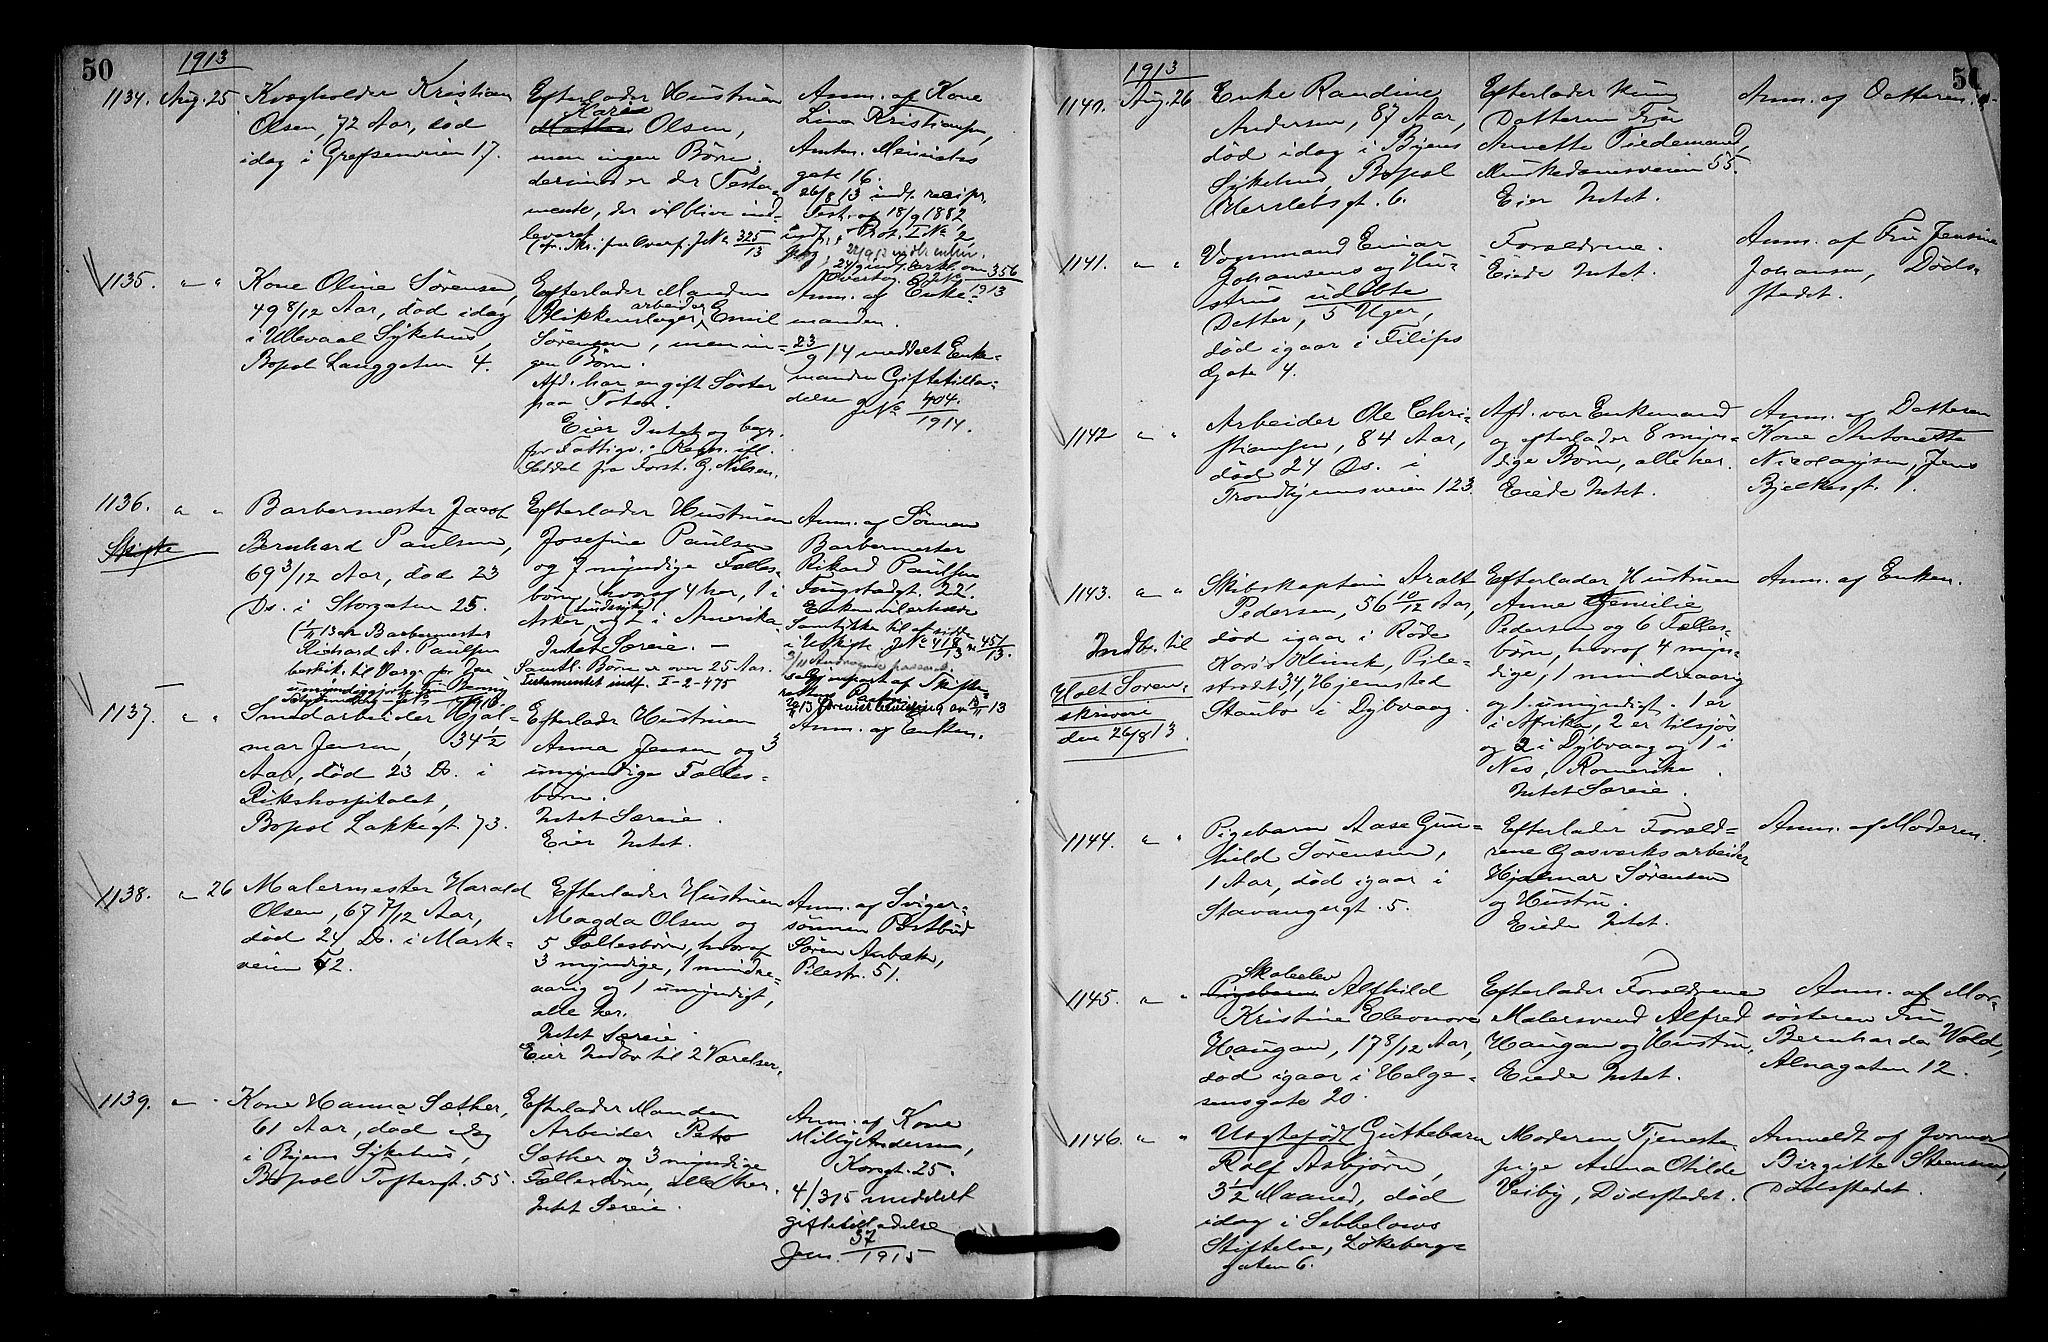 50
1913
1134. Aug. 25
Kvægholder Kristian
Olsen, 72 Aar, død
idag i Grefsenveien 17.
Efterlader Hustruen
Karen
Olsen,
men ingen Børn.
derimod er der Testa-
mente, der vil blive ind-
leveret
J.No. 325/13
Anm. af Kone
Lina Kristiansen,
Amtm. Meinichs
gate 16.
26/8 13 indl. recipr.
Test. af 18/9 1882
indf. Prot. I No. 2
356
1913
1135. " "
Kone Oline Sørensen,
49 8/12 Aar, død idag
i Ullevaal Sykehus,
Bopæl Langgaten 4.
Efterlader Manden
arbeider
Blikkenslager Emil
Sørensen, men in-
gen Børn.
Afd. har en gift Søster
paa Toten.
Eier Intet og begr.
for Fattigv. Regn. ifl.
Seddel fra Forst. G. Nilsen.
Anm. af Enke-
manden.
23/9 14 meddelt Enke-
manden Giftetilla-
delse
J.No. 404
1914.
1136. " "
Skifte
Barbermester Jacob
Bernhard Paulsen,
69 3/12 Aar, død 23
Ds. i Storgaten 25.
13 er Barbermester
Richard A. Paulsen
beskik. til Værge for den
Efterlader Hustruen
Josefine Paulsen
og 7 myndige Fælles-
børn, hvoraf 4 her, 1 i
Asker, og 2 i Amerika.
Intet Særeie. -
Samtl. Børn er over 25 Aar.
Testamentet indf. I-2-475
Anm. af Sønnen
Barbermester
Rikard Paulsen
Tungstadgt. 22.
Enken vil erhverve
Samtykke til at sidde
i Uskifte J.No. 418/13 451/13.
1137 " "
Smedarbeider Hjal-
mar Jensen, 34 1/2
Aar, død 23 Ds. i
Rikshospitalet,
Bopæl Lakkegt. 73.
Efterlader Hustruen
Anna Jensen og 3
umyndige Fælles-
børn.
Intet Særeie.
Eier Intet.
Anm. af Enken.
1138. " 26
Malermester Harald
Olsen, 67 7/12 Aar,
død 24 Ds. i Mark-
veien 52.
Efterlader Hustruen
Magda Olsen og
5 Fællesbørn, hvoraf
3 myndige, 1 mindre-
aarig og 1 umyndigt,
alle her.
Intet Særeie
Eier Indbo til 2 Værelser.
Anm. af Sviger-
sønnen Postbud
Søren Aabæk,
Pilestr. 51.
1139. " "
Kone Hanna Sæther,
61 Aar, død idag
i Byens Sykehus,
Bopæl Toftesgt. 55.
Efterlader Manden
Arbeider Peto
Sæther og 3 myndige
Fællesbørn, alle her.
Intet Særeie.
Anm. af Kone
Milly Andersen,
Korsgt. 25.
4/3 15 meddelt
giftetilladelse
Jnr. 37
1915
51
1913
1140. Aug. 26
Enke Randine
Andersen, 87 Aar,
død idag i Byens
Sykehus, Bopæl
Oderslebsgt. 6.
Efterlader kun
Datteren Fru
Annette Tiedemand,
Munkedamsveien 55.
Eier Intet.
Anm. af Datteren.
1141. " "
Vognmand Einar
Johansens og Hu-
strus udøbte
Datter, 5 Uger,
død igaar i Filips
Gate 4.
Forældrene.
Eiede Intet.
Anm. af Fru Jensine
Johansen, Døds-
stedet.
1142 " "
Arbeider Ole Chri-
stiansen, 84 Aar,
død 24 Ds. i
Trondhjemsveien 123.
Afd. var Enkemand
og efterlader 8 myn-
dige Børn, alle her.
Eiede Intet.
Anm. af Datteren
Kone Antonette
Nicolaysen, Jens
Bjelkesgt. 1.
1143. " "
Indb. til
Holt Soren-
skriveri
den 26/8 13.
Skibskaptein Aralt
Pedersen, 56 10/12 Aar,
død igaar i Røde
Kors's Klinik, Pile-
strædet 34, Hjemsted
Staubø i Dybvaag.
Efterlader Hustruen
Anne Gemilie
Pedersen og 6 Fælles-
børn, hvoraf 4 myn-
dige, 1 mindreaarig
og 1 umyndigt. 1 er
i Afrika, 2 er tilsjøs
og 2 i Dybvaag og 1 i
Nes, Romerike.
Intet Særeie.
Anm. af Enken.
1144. " "
Pigebarn Aase Gun-
hild Sørensen,
1 Aar, død igaar i
Stavangergt. 5.
Efterlader Foræld-
rene Gasværksarbeider
Hjalmar Sørensen
og Hustru.
Eiede Intet.
Anm. af Moderen.
1145. " "
Skoleelev
Pigebarn Alfhild
Kristine Eleonore
Haugan, 17 8/12 Aar,
død igaar i Helge-
sensgate 20.
Efterlader Forældrene
Malersvend Alfred
Haugan og Hustru.
Eiede Intet.
Anm. af Mor-
søsteren Fru
Bernharda Wold,
Alnagaten 12.
1146. " "
Uegtefødt Guttebarn
Rolf Asbjørn,
3 1/2 Maaned, død
idag i Sebbelows
Stiftelse, Løkeberg-
gaten 6.
Moderen Tjeneste-
pige Anna Otilde
Veiby, Dødsstedet.
Anmeldt af Jormor
Birgitte Steensen,
Dødsstedet.